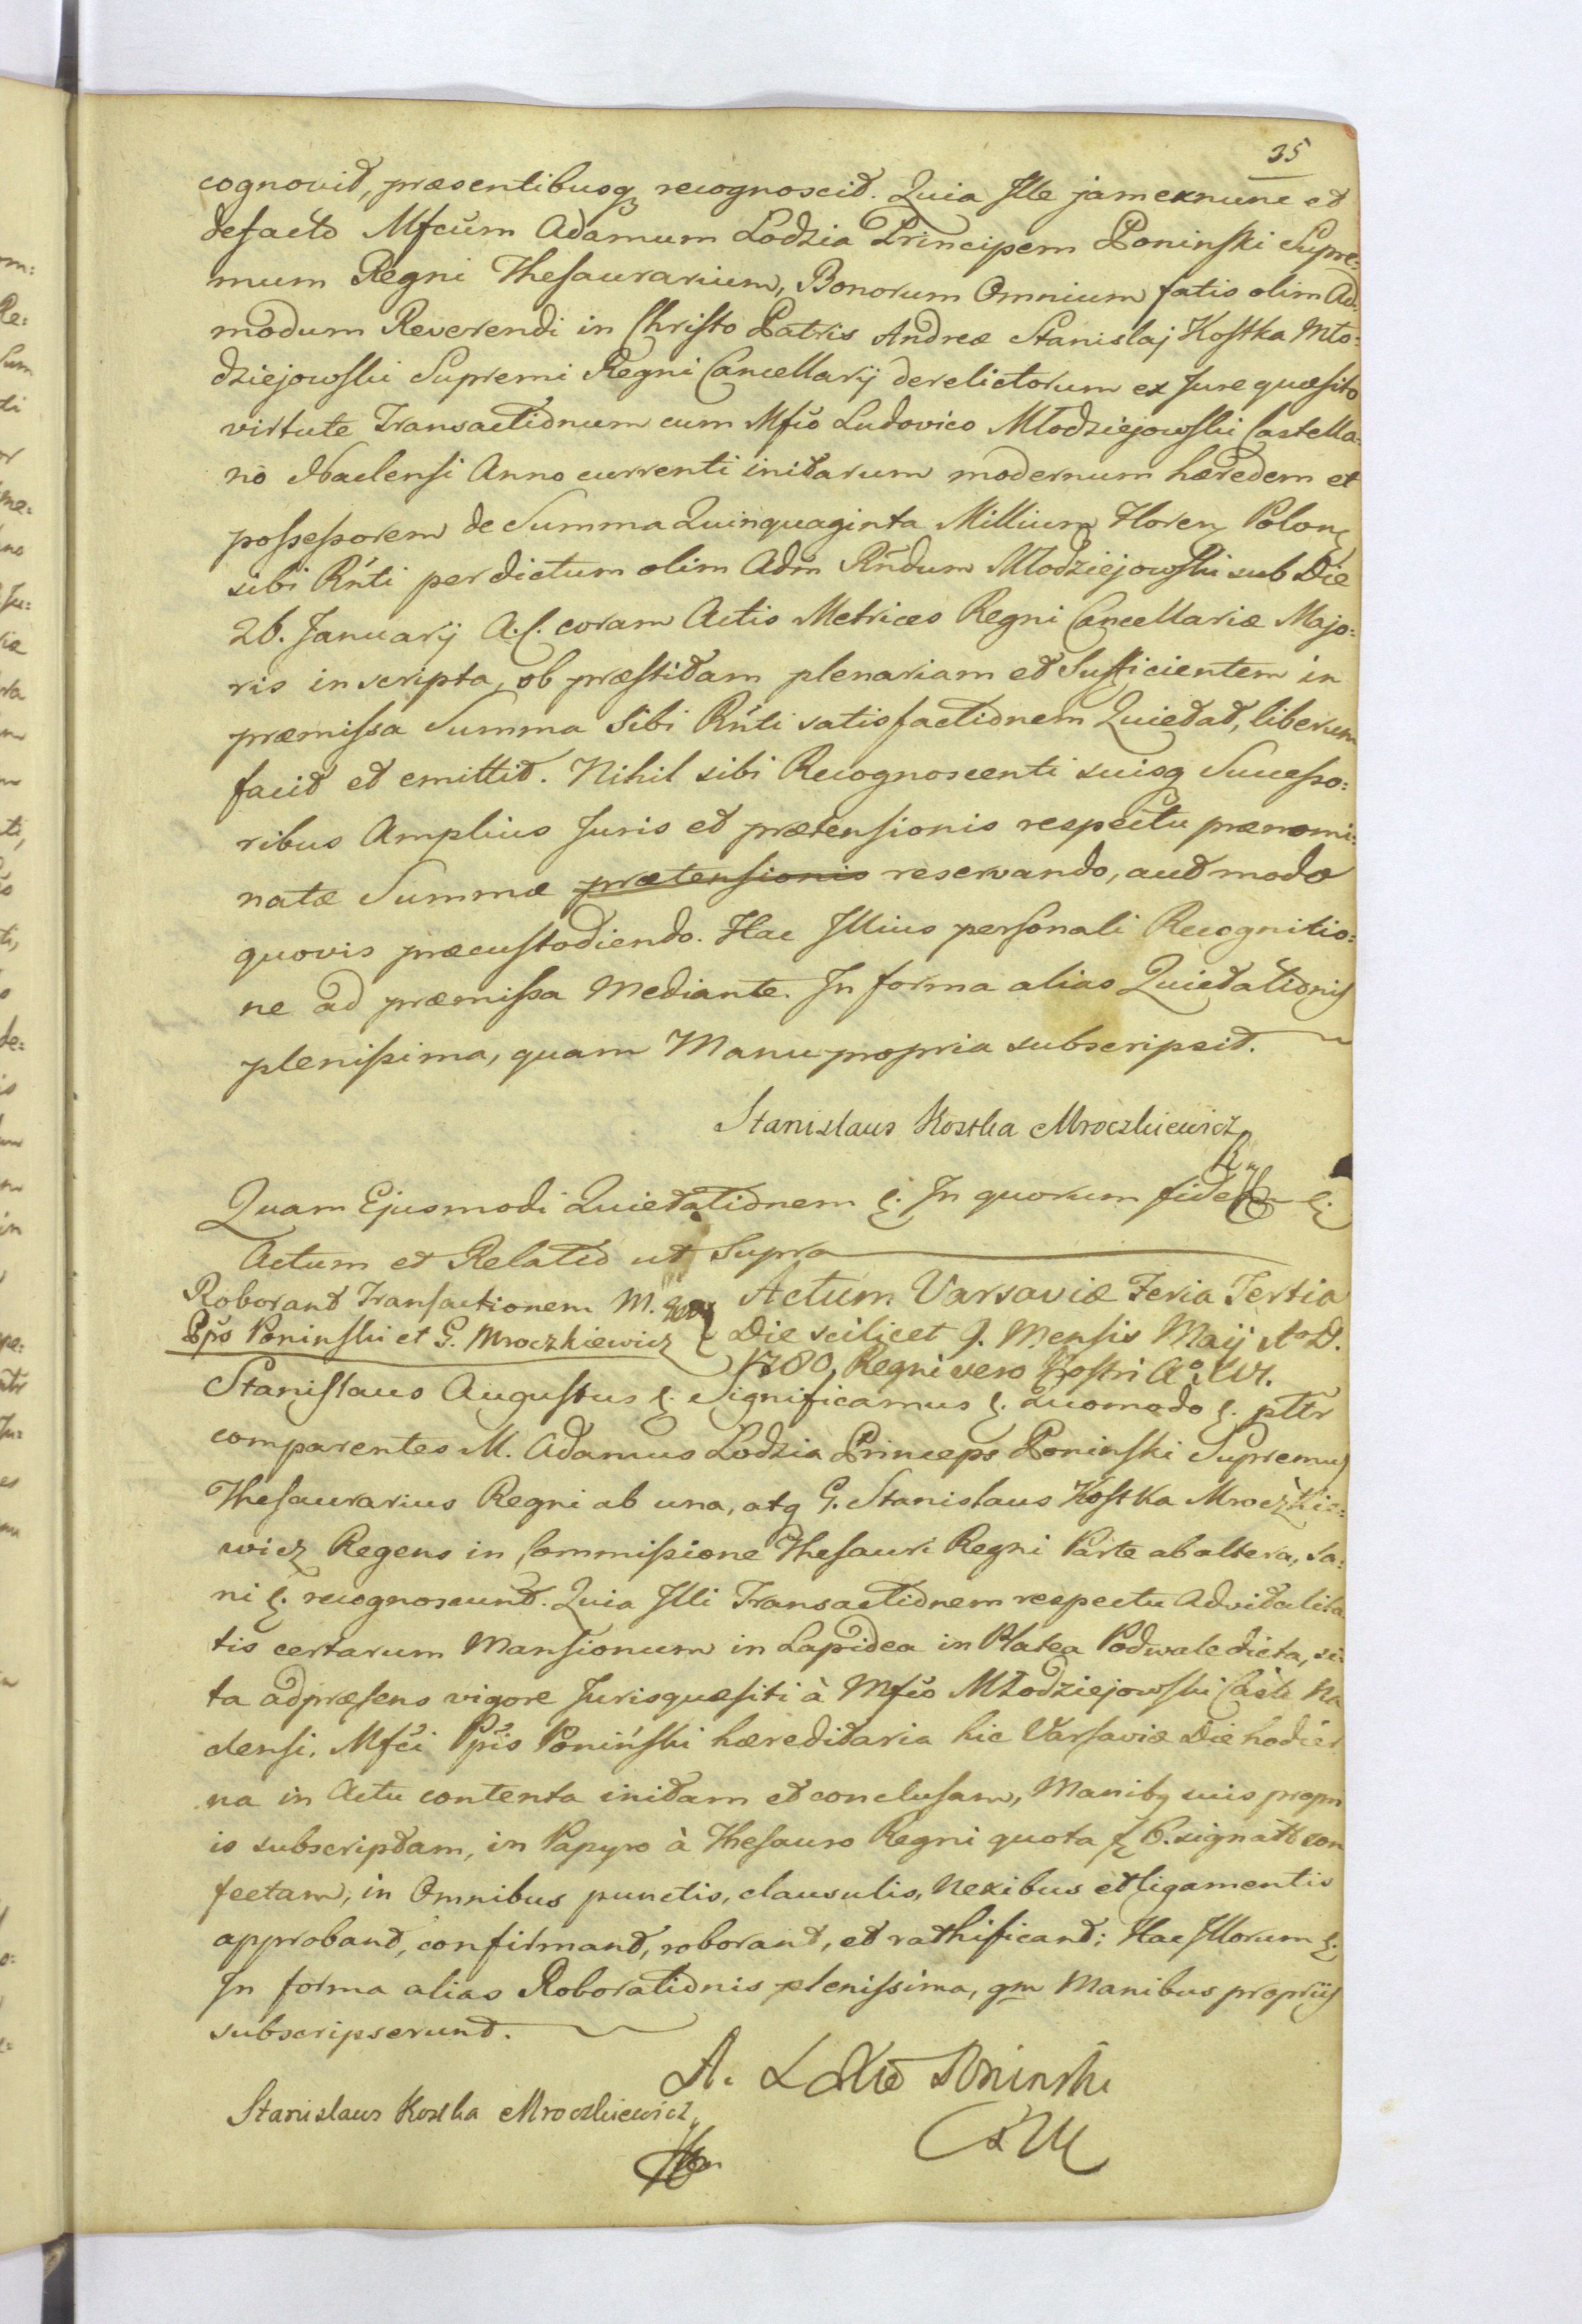 35
cognovit, præsentibusq recognoscit. Quia Ille jam exnunc et
defacto Mfcum Adamum Lodzia Principem Poninski Supre:
mum Regni Thesaurarium, Bonorum Omnium fatis olim Ad:
modum Reverendi in Christo Patris Andreæ Stanislaj Kostka Mło:
dziejowski Supremi Regni Cancellarij derelictorum ex Jure quæsito
virtute Transactionum cum Mfco Ludovico Młodziejowski Castella:
no Naclensi Anno currenti initarum modernum hæredem et
possessorem de Summa Quinquaginta Millium Floren Polon
sibi Rnti per dictum olim Adm Rndum Młodziejowski sub Die
26. Januarij A.C. coram Actis Metrices Regni Cancellariæ Majo:
ris inscripta, ob præstitam plenariam et Sufficientem in
præmissa Summa Sibi Rnti satisfactionem Quietat, liberum
facit et emittit. Nihil sibi Recognoscenti suisq Successo:
ribus Amplius Juris et prætensionis respectu prænomi:
natæ Summæ prætensionis reservando, aut modo
quovis præcustodiendo. Hac Illius personali Recognitio:
ne ad præmissa Mediante. In forma alias Quietationis
plenissima, quam Manu propria subscripsit.
Stanislaus Kostka Mroczkiewicz
Quam Ejusmodi Quietationem &. In quorum fidem &.
Actum et Relatio ut Supra
Roborant Transactionem M.
Pps Poninski et G. Mroczkiewicz
Actum Varsaviæ Feria Tertia
Die scilicet 9. Mensis Maij Ao D.
1780, Regni vero Nostri Ao XVI.
Stanislaus Augustus &. Significamus &. Quomodo &. pttr
comparentes M. Adamus Lodzia Princeps Poninski Supremus
Thesaurarius Regni ab una, atq G. Stanislaus Kostka Mroczkie:
wicz Regens in Commissione Thesauri Regni Parte ab altera, sa:
ni &. recognoscunt. Quia Illi Transactionem respectu Advitalita
tis certarum Mansionum in Lapidea in Platea Podwale dicta, si:
ta adpræsens vigore Jurisquæsiti à Mfco Młodziejowski Castt Na
clensi, Mfci Ppis Poniński hæreditaria hic Varsaviæ Die hodier
na in Actu contenta initam et conclusam, Manibq suis propri
is subscriptam, in Papyro à Thesauro Regni quota 6. signatt con
fectam, in Omnibus punctis, clausulis, Nexibus et ligamentis
approbant, confirmant, roborant, et rathificant: Hac Illorum &.
In forma alias Roborationis plenissima, qm Manibus proprijs
subscripserunt.
A. Poninski
Stanislaus Kostka Mroczkiewicz